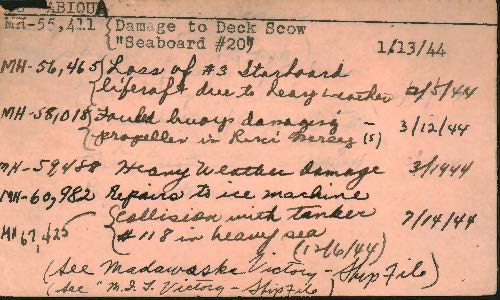 ABIQUA
MH-55,411 {Damage to Deck Scow
"Seaboard #20" 1/13/44
MH-56,465 {Loss of #3 Starboard
liferaft due to heavy weather 2/5/44
MH-58,018 {Fouled buoys damaging -
propeller in River Mersey (s) 3/12/44
MH-59488 Heavy Weather Damage 3/1944
MH-60,982 Repairs to ice machine
MH 67,425 {Collision with tanker 7/14/44
#118 in heavy sea
(12/6/44)
(See Madawaska Victory - Ship File)
(See "M.I.T. Victory - Ship File)